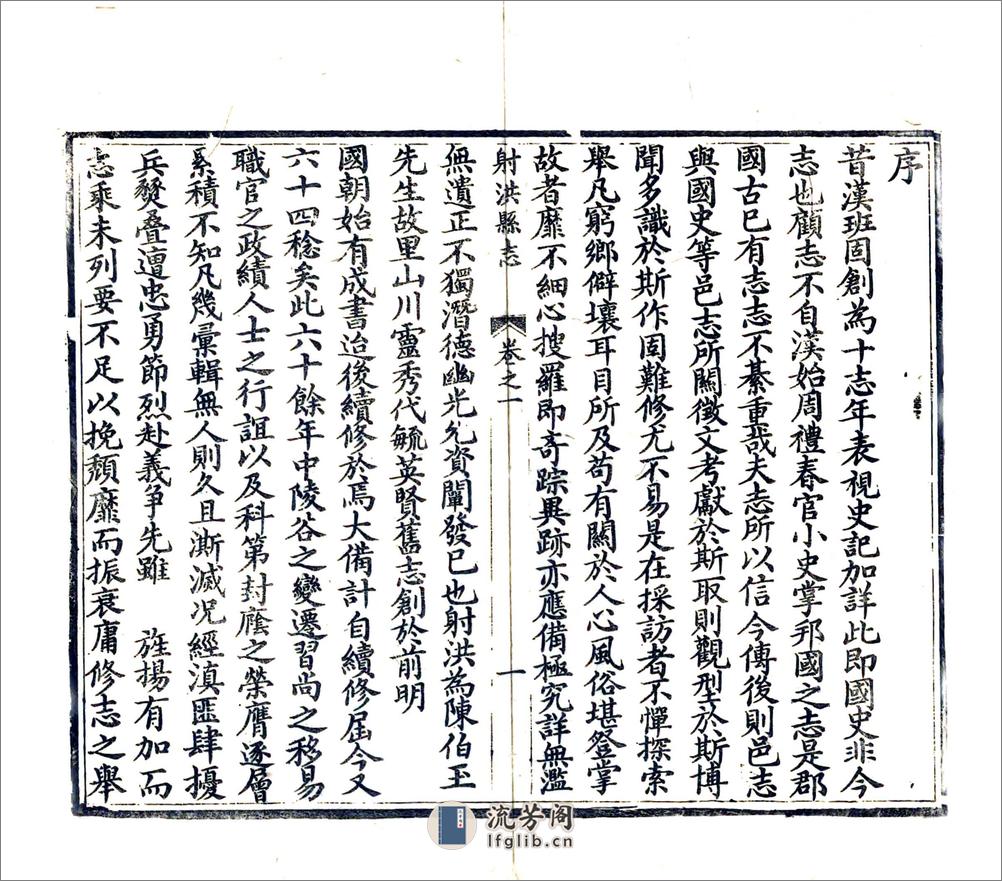 序
昔漢班固創為十志年表視史記加詳此即國史非今
志也顧志不自漢始周禮春官小史掌邦國之志是郡
國古已有志志不綦重哉夫志所以信今傳後則邑志
與國史等邑志所關徵文考獻於斯取則觀型於斯博
聞多識於斯作固難修尤不易是在採訪者不憚探索
舉凡窮鄉僻壤耳目所及苟有關於人心風俗堪登掌
故者靡不細心搜羅即奇踪異跡亦應備極究詳無濫
射洪縣志 卷之一 一
無遺正不獨潛德幽光允資闡發已也射洪為陳伯玉
先生故里山川靈秀代毓英賢舊志創於前明
國朝始有成書迨後續修於焉大備計自續修屆今又
六十四稔矣此六十餘年中陵谷之變遷習尚之移易
職官之政績人士之行誼以及科第封廕之榮膺逐層
累積不知凡幾彙輯無人則久且澌滅况經滇匪肆擾
兵燹叠遭忠勇節烈赴義爭先雖 旌揚有加而
志乘未列要不足以挽頹靡而振衰庸修志之舉
流芳阁
lfglib.cn